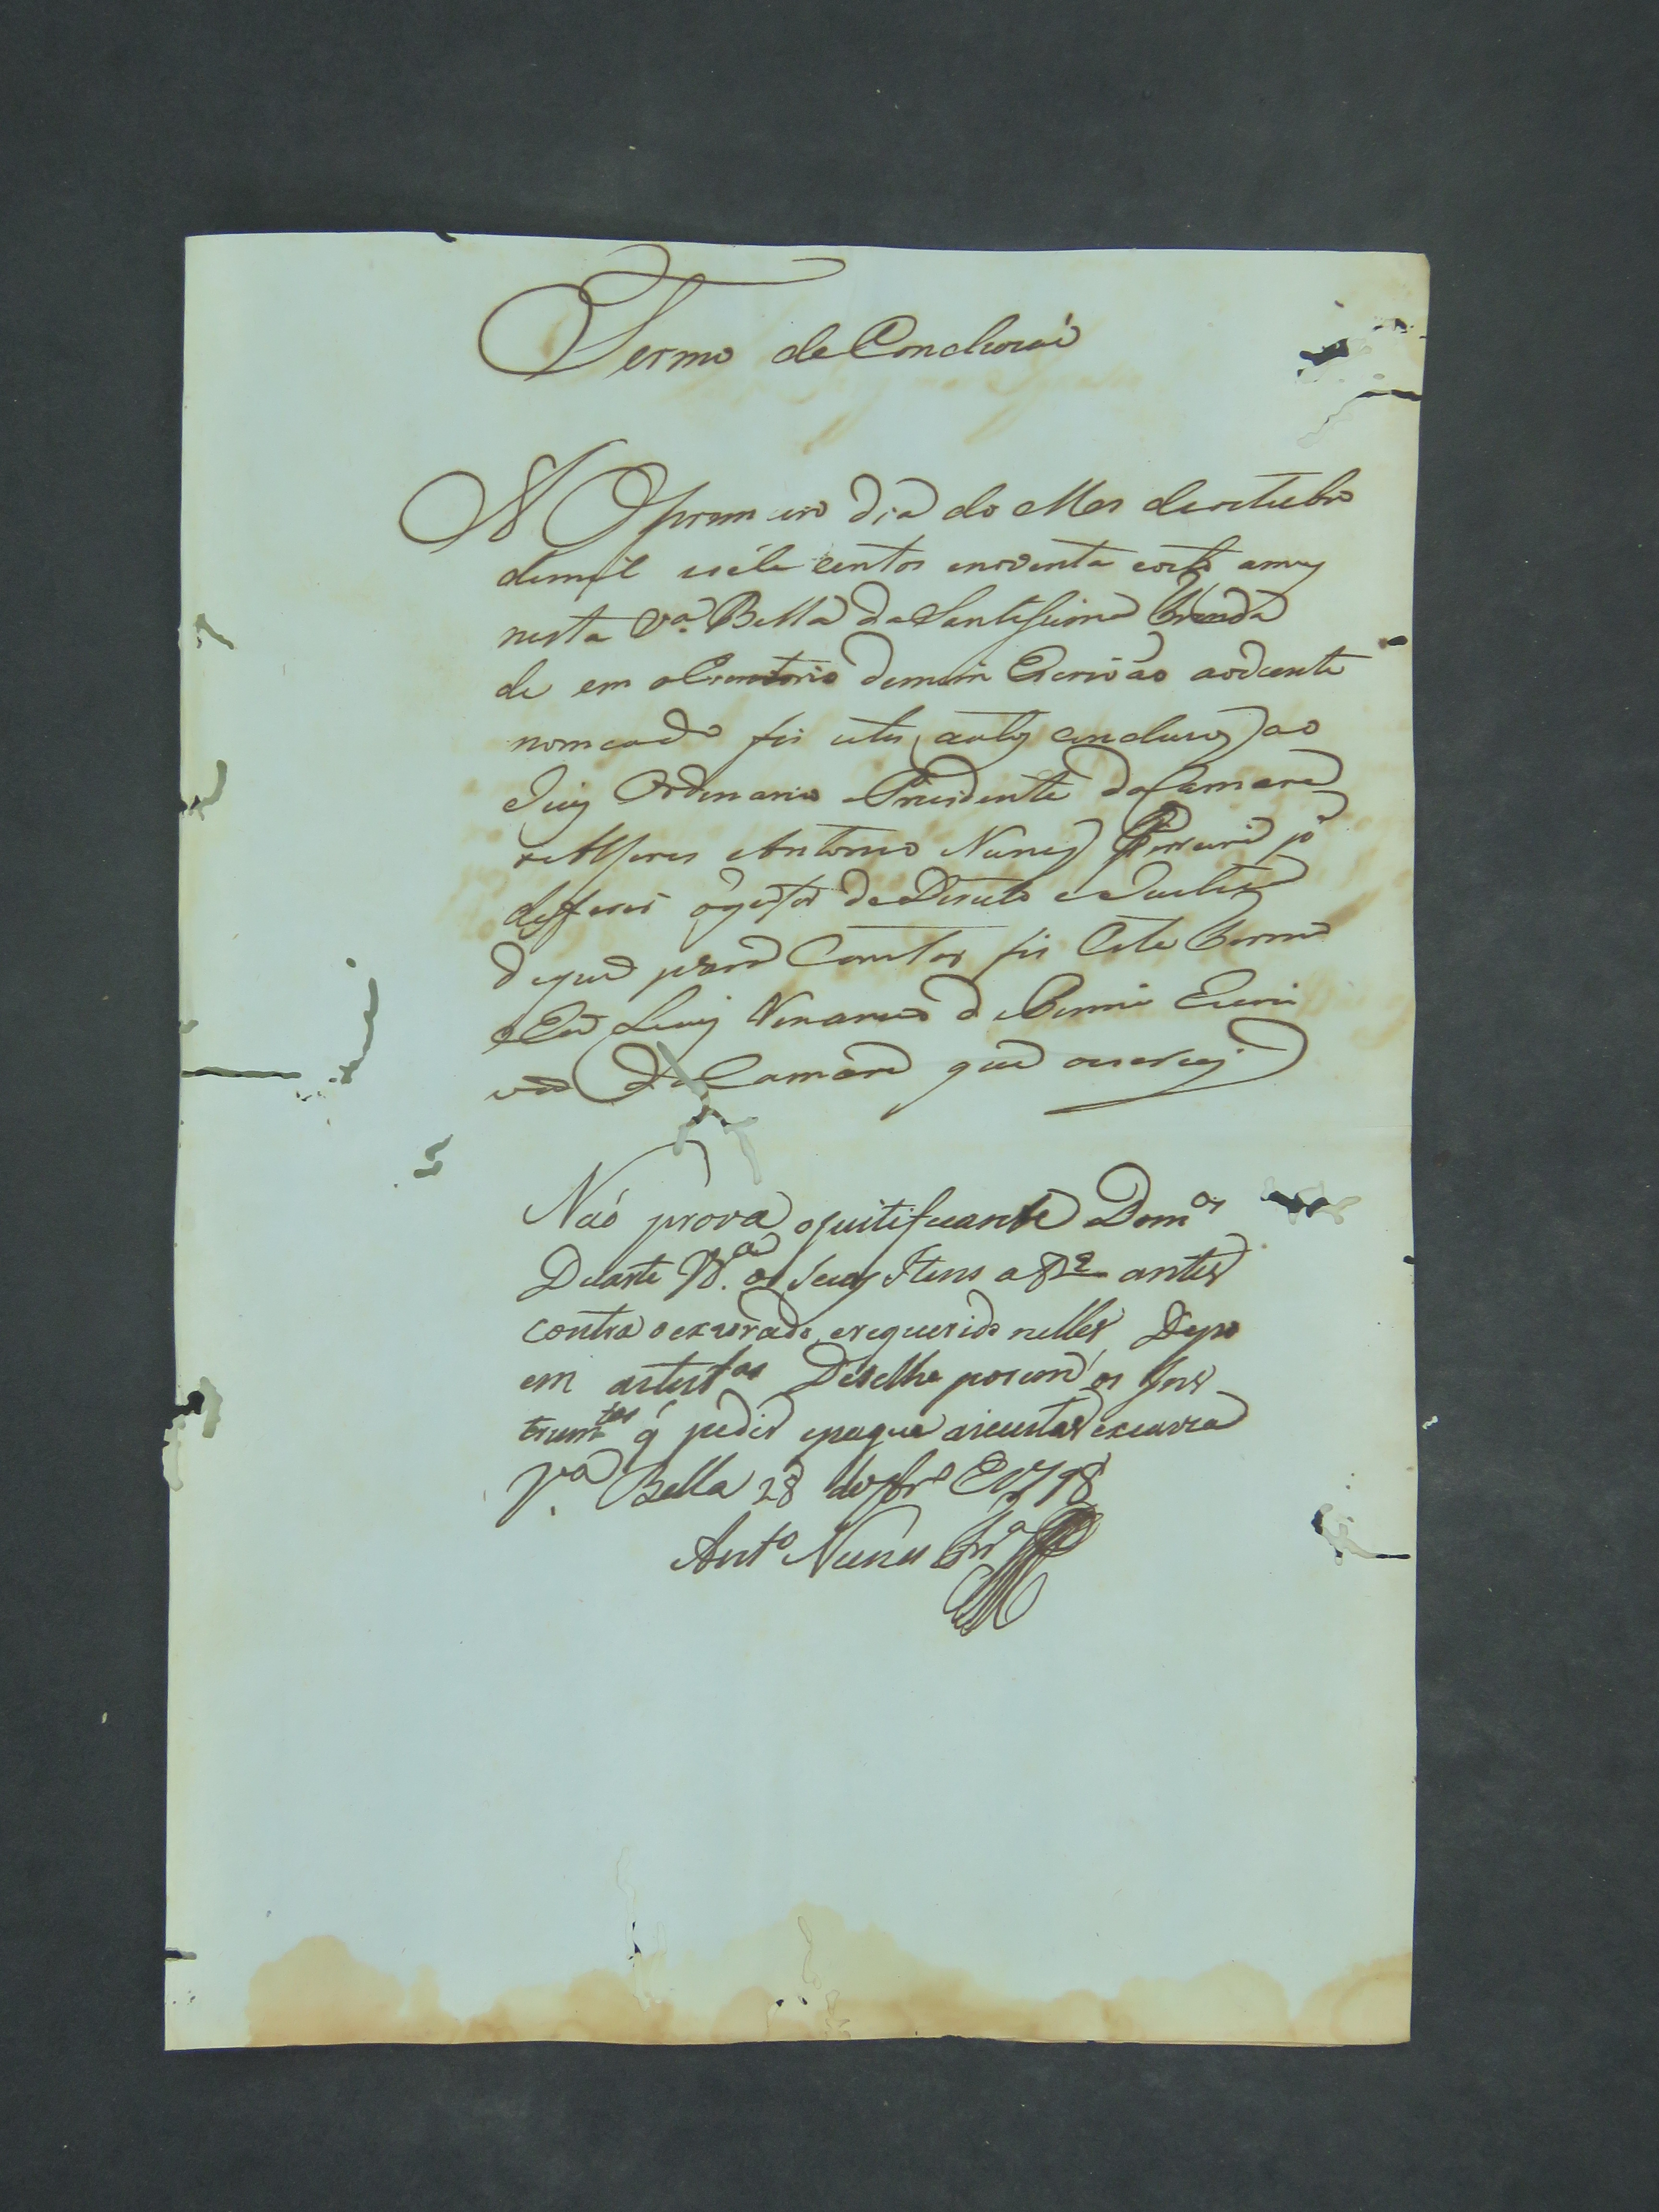 Termo de Concluzaõ
NO primeiro dia do Mes de outubro
de mil e sete centos enoventa eoito annos
nesta Vª Bella da Santissima Trinda
de em o Escritorio de mim Escrivaõ aodiante
nomeado fis estes autos concluzos ao
Juiz Ordinario Prezidente da Camara
o Alferes Antonio Nunes pª
defferir o q̃ for de Direito e Justiça
de que para Constar fis Este Termo
e Eu Luiz de Escri
vaõ da Camara que o escrevy
Naõ prova o justificante Domos
Duarte os seus Itens a antes
contra o exzorado, erequerido nelles
em as testas Deselhe porem os Ins
trumtos q̃ pedir epague as custas
Vª Bella 28 de 8brº E 1798
Antº Nunes